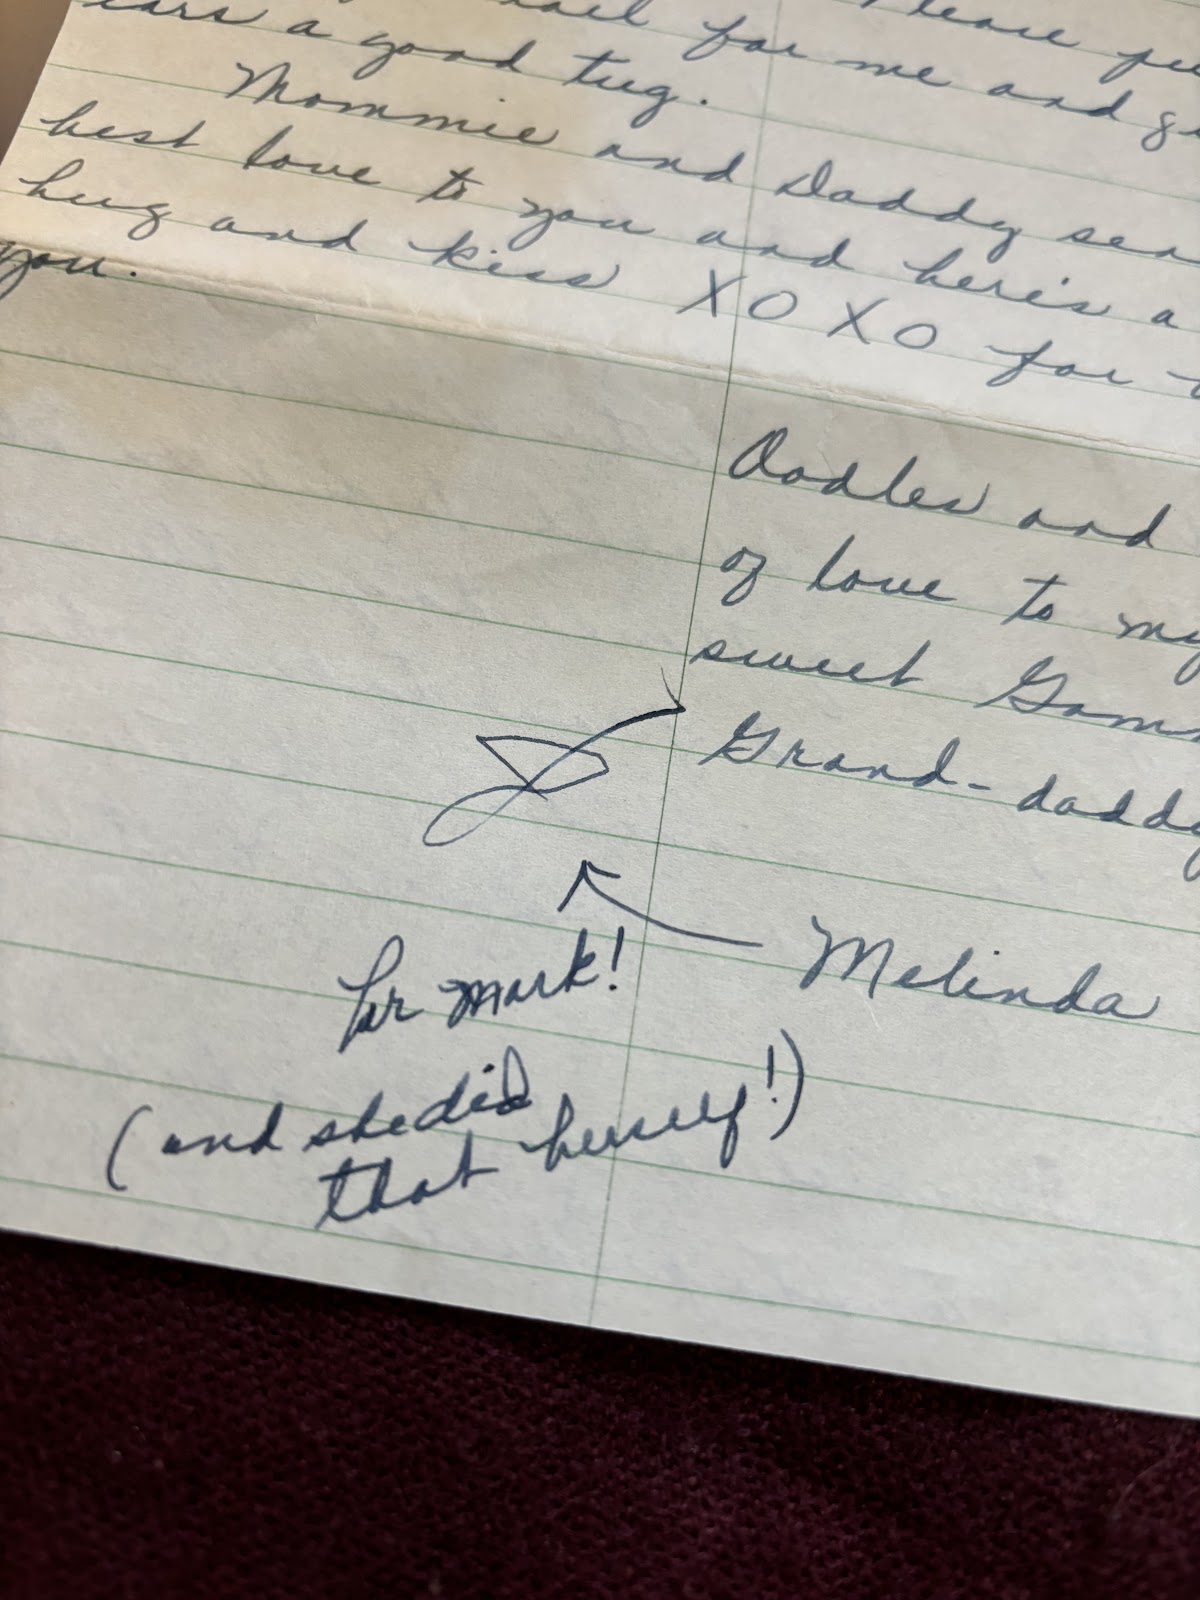 for me and
ears a good tug.
Mommie and Daddy
best love to you and here's a
hug and kiss XOXO for
you.
Oodles and
of love to my
sweet
Grand-daddy
Melinda
her mark!
(and she did
that herself!)